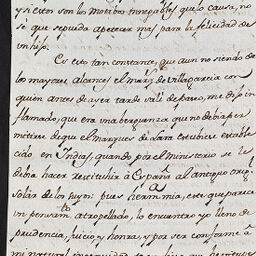 y si estos son los motibos innegables que lo causa, no
sé que se pueda apetecer mas para la felicidad de
un hijo.
Es esto tan constante, que aun no siendo de
los mayores alcances el marqs de Villagarcia con
quien antes de ayer tarde salí de paseo, me dijo in-
flamado, que era una berguenza que no debia per
mitirse de que el marques de Lara estubiese estable
cido en Indias, quando por el ministerio se le
debia hacer restituhir à España al antiguo
solar de los suyos: pues herm.a mia, este que parece
un pensam.to atropellado, lo encuentro yo lleno de
prudencia, juicio y honra, y por ser conforme à
mi natural